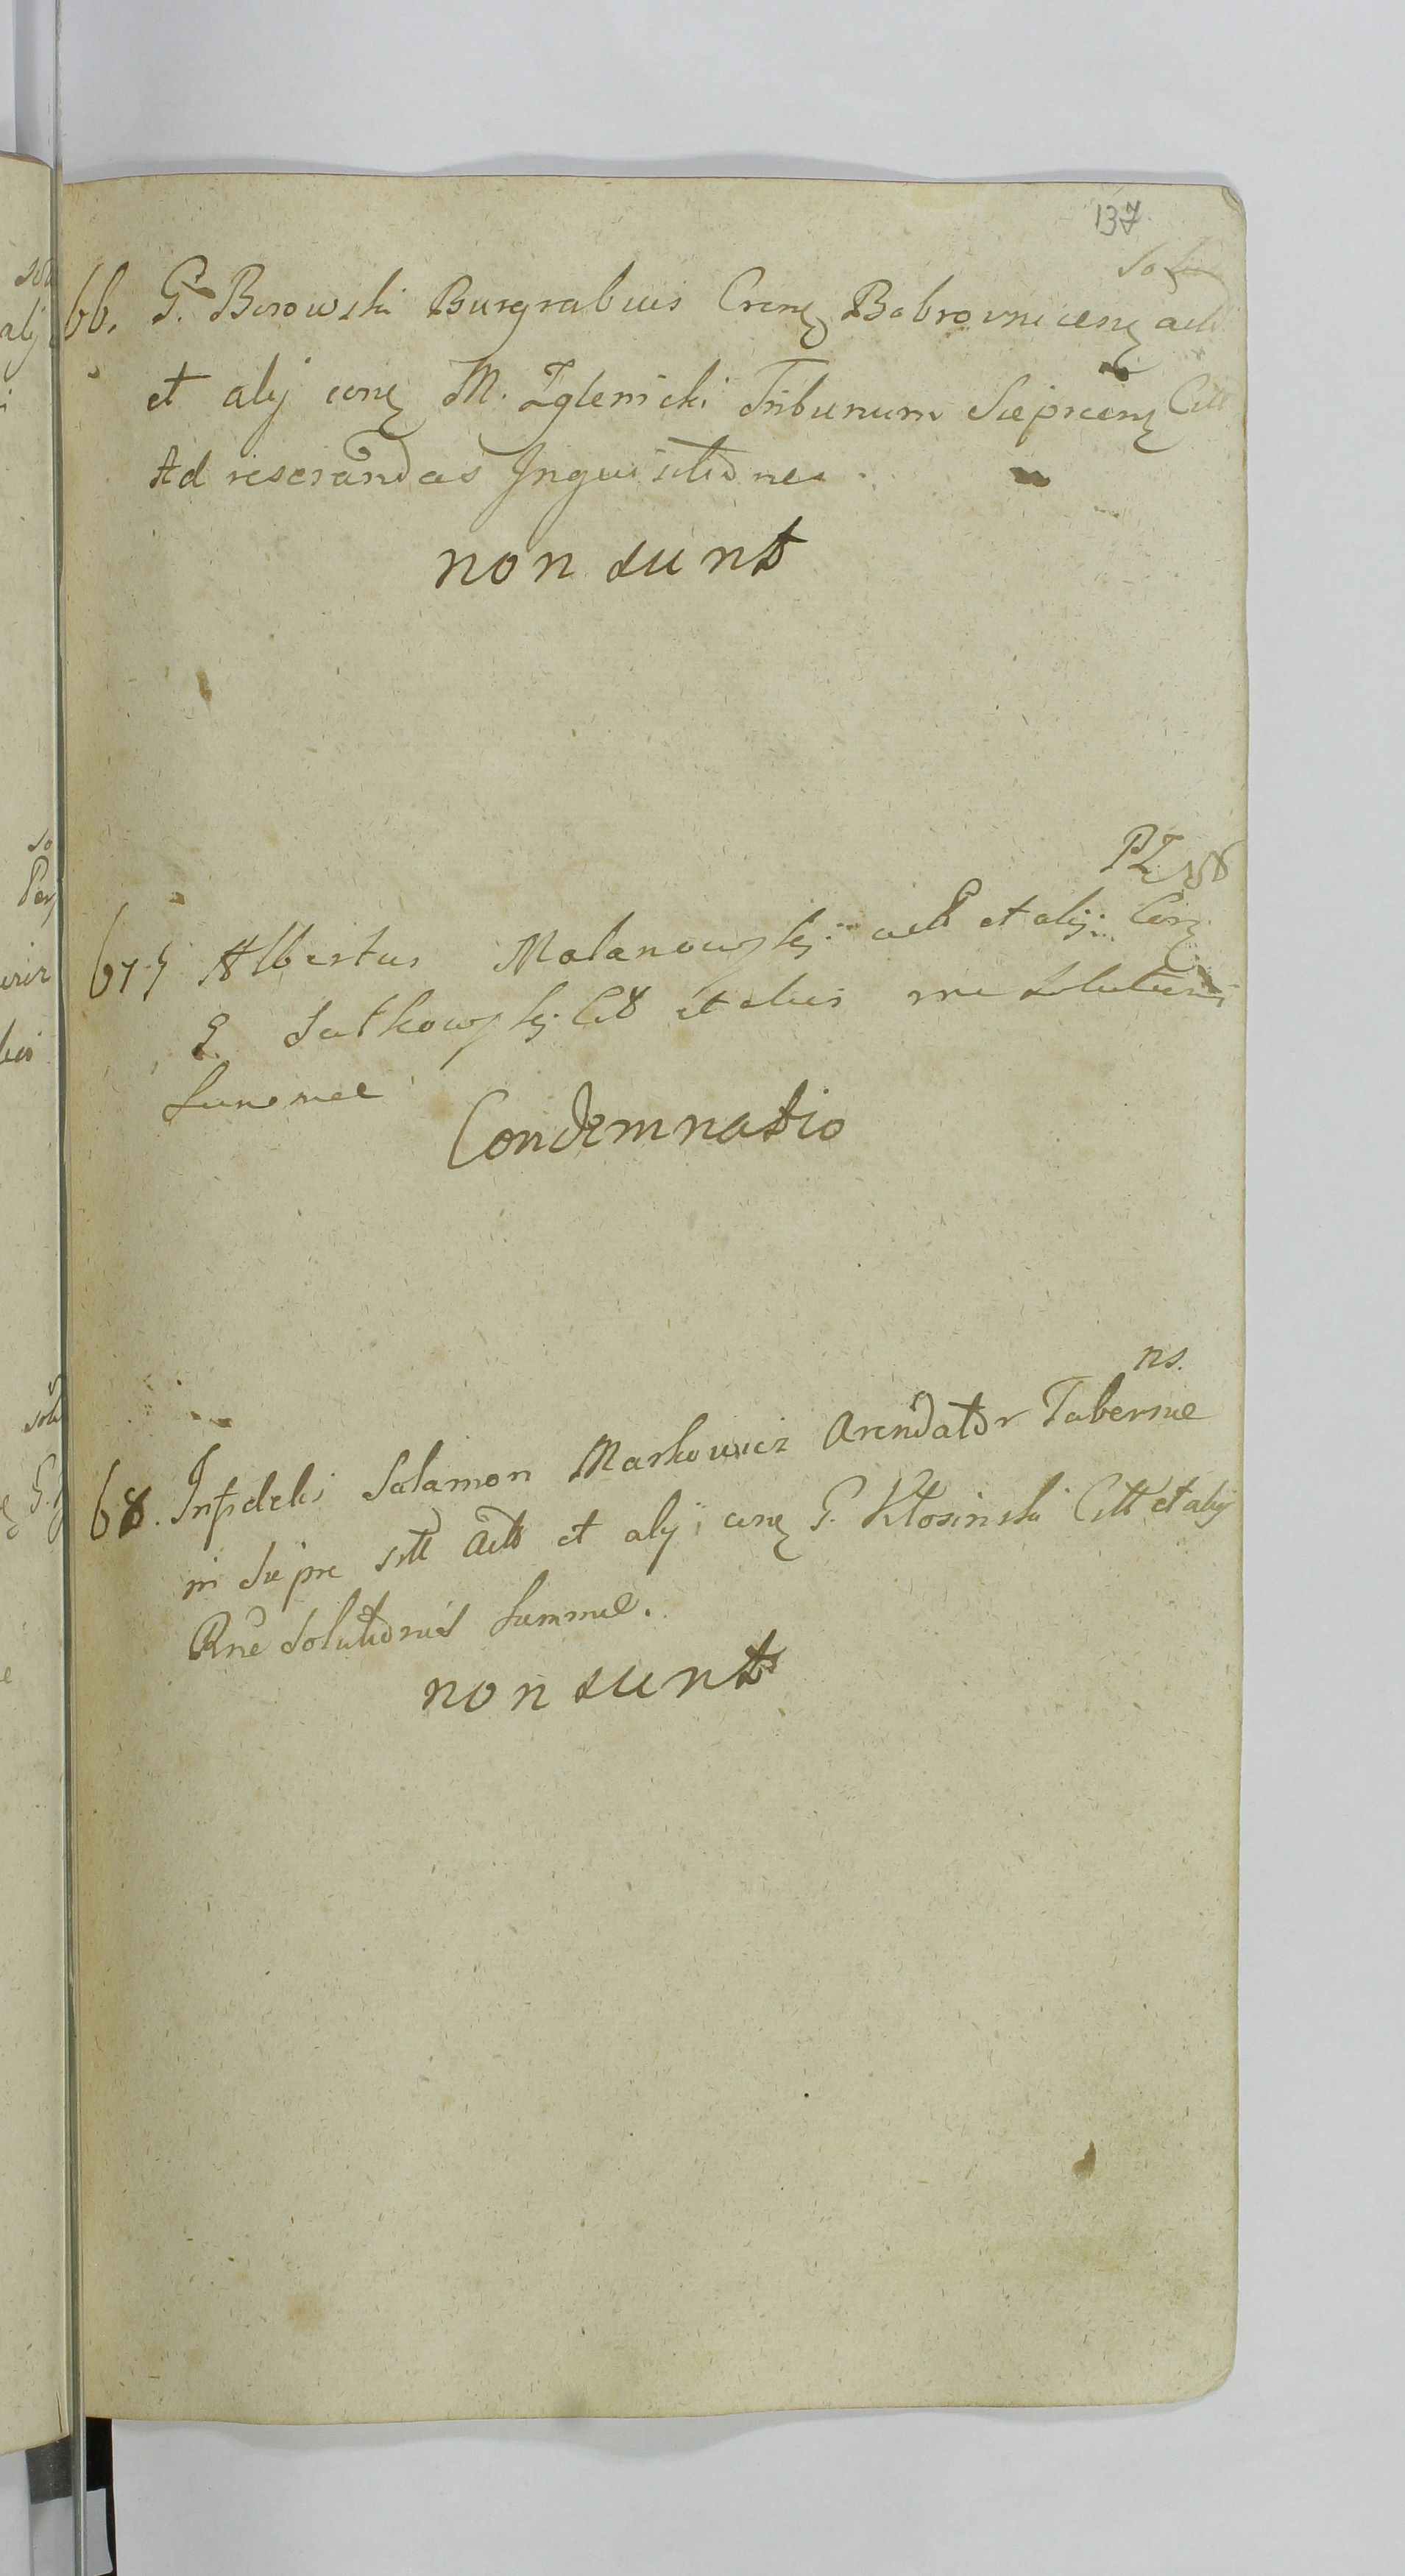 137
Solu
66. G. Borowski Burgrabius Crenẜ Bobrovnicenẜ actt
et alij conẜ M. Zglenicki Tribunum Siepricenẜ Citt
Ad reserandas Inquisitiones
non sunt
PZ
67. G Albertus Malanowskj actt et alij Conẜ
G. Sutkowskj Citt et alios rne Solutionis
Summae
Condemnatio
ns.
68. Infidelis Salamon Markowicz Arendator Tabernae
in Siepre sttt Actt et alij conẜ G. Kłosinski Citt et alij
Rne Solutionis Summae.
non sunt